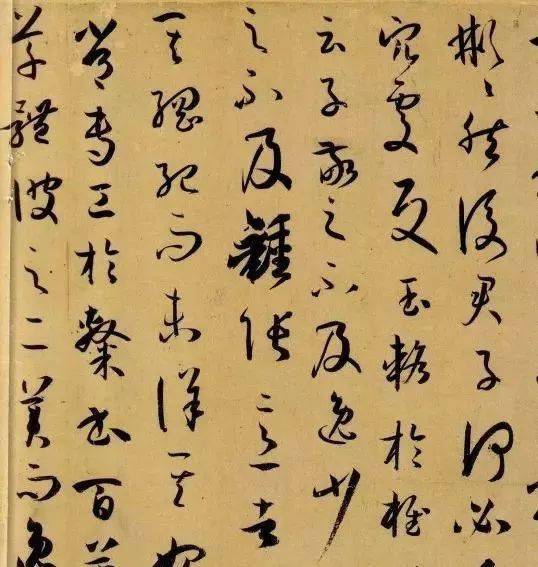 彬彬然後君子何必
穴處反玉輅於椎
云子敬之不及逸少
之不及鍾張意者
其綱紀而未詳其
嘗專工於隸書百
草體彼之二美而逸